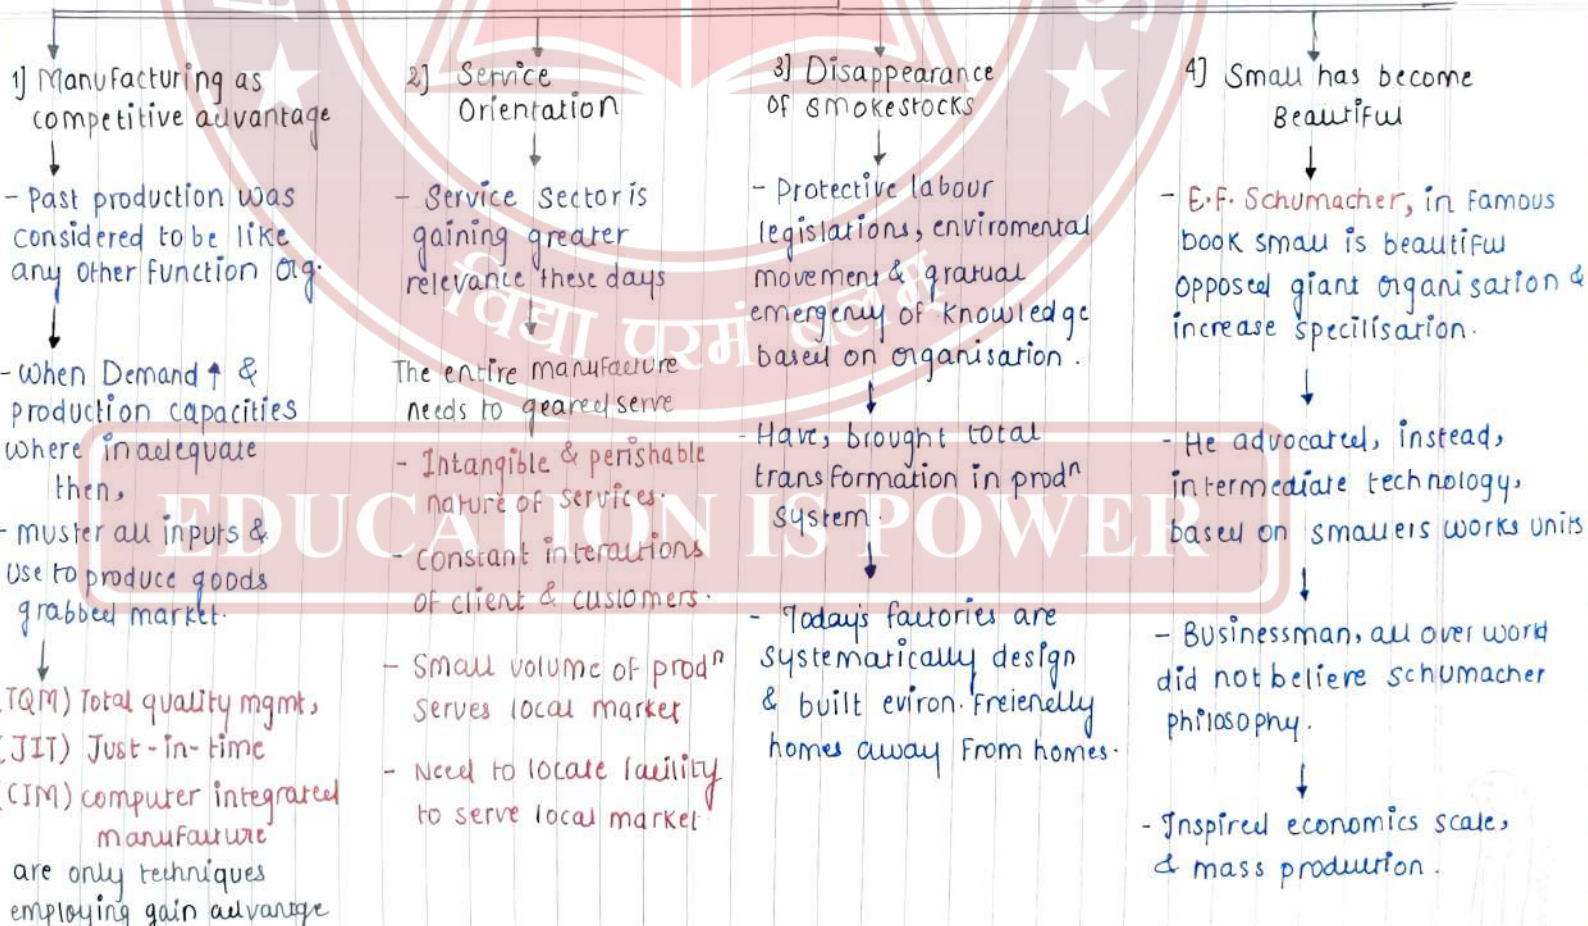 1] Manufacturing as
competitive advantage
- Past production was
considered to be like
any other function org.
- when Demand ↑ &
production capacities
where inadequate
then,
- muster all inputs &
use to produce goods
grabbed market.
(TQM) Total quality mgmt,
(JIT) Just-in-time
(CIM) computer integrated
manufacture
are only techniques
employing gain advantage
2] Service
Orientation
- Service Sector is
gaining greater
relevance these days
The entire manufacture
needs to geared serve
- Intangible & perishable
nature of services.
- constant interactions
of client & customers.
- Small volume of prodⁿ
serves local market
- Need to locate facility
to serve local market
3] Disappearance
of smokestocks
- Protective labour
legislations, enviromental
movement & gratual
emergency of knowledge
based on organisation.
- Have, brought total
transformation in prodⁿ
system.
- Today's factories are
systematically design
& built eviron. Freienelly
homes away from homes.
4] Small has become
Beautiful
- E.F. Schumacher, in famous
book small is beautiful
opposed giant organisation &
increase specilisation.
- He advocated, instead,
intermediate technology,
based on smallers works units
- Businessman, all over world
did not believe schumacher
philosophy.
- Inspired economics scale,
& mass production.
विद्या परमं बलम
EDUCATION IS POWER